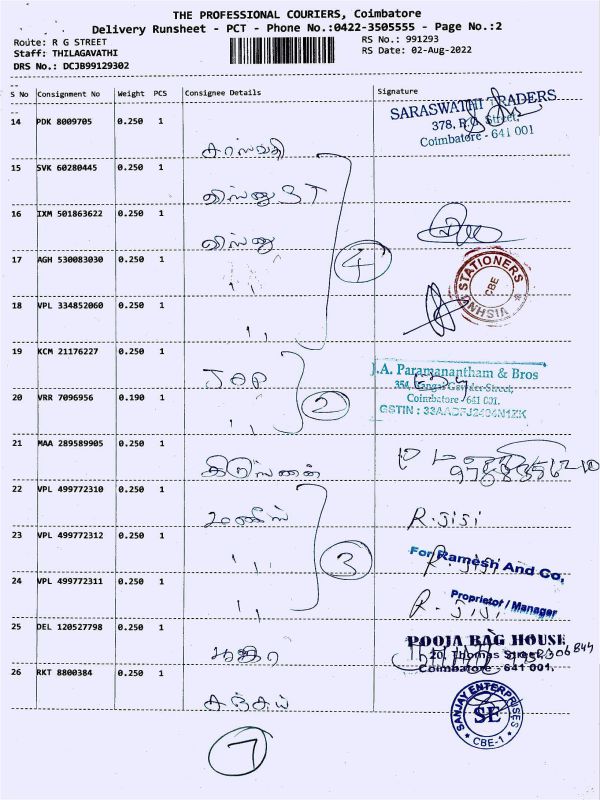 THE PROFESSIONAL COURIERS, Coimbatore
Delivery Runsheet - PCT - Phone No.:0422-3505555 - Page No.:2
Route: R G STREET
RS No.: 991293
Staff: THILAGAVATHI
RS Date: 02-Aug-2022
DRS No.: DCJB99129302
S No Consignment No Weight PCS Consignee Details Signature
14 PDK 8009705 0.250 1
SARASWATHI TRADERS
378, R.G. Street,
Coimbatore - 641 001
சரஸ்வதி
15 SVK 60280445 0.250 1
விஸ்ணு ST
16 IXM 501863622 0.250 1
விஸ்ணு
17 AGH 530083030 0.250 1
4
STATIONERS
CBE
VISHNU
18 VPL 334852060 0.250 1
19 KCM 21176227 0.250 1
JAP
J.A. Paramanantham & Bros
Coimbatore - 641 001.
GSTIN : 33AADFJ2404N1ZK
20 VRR 7096956 0.190 1
2
21 MAA 289589905 0.250 1
22 VPL 499772310 0.250 1
R. JiJi
23 VPL 499772312 0.250 1
3
For Ramesh And Co,
R. JiJi
24 VPL 499772311 0.250 1
Proprietor / Manager
R. JiJi
25 DEL 120527798 0.250 1
பூஜா
POOJA BAG HOUSE
20, Thomas Street,
Coimbatore - 641 001,
26 RKT 8800384 0.250 1
சஞ்சய்
SANJAY ENTERPRISES
SE
CBE-1
7